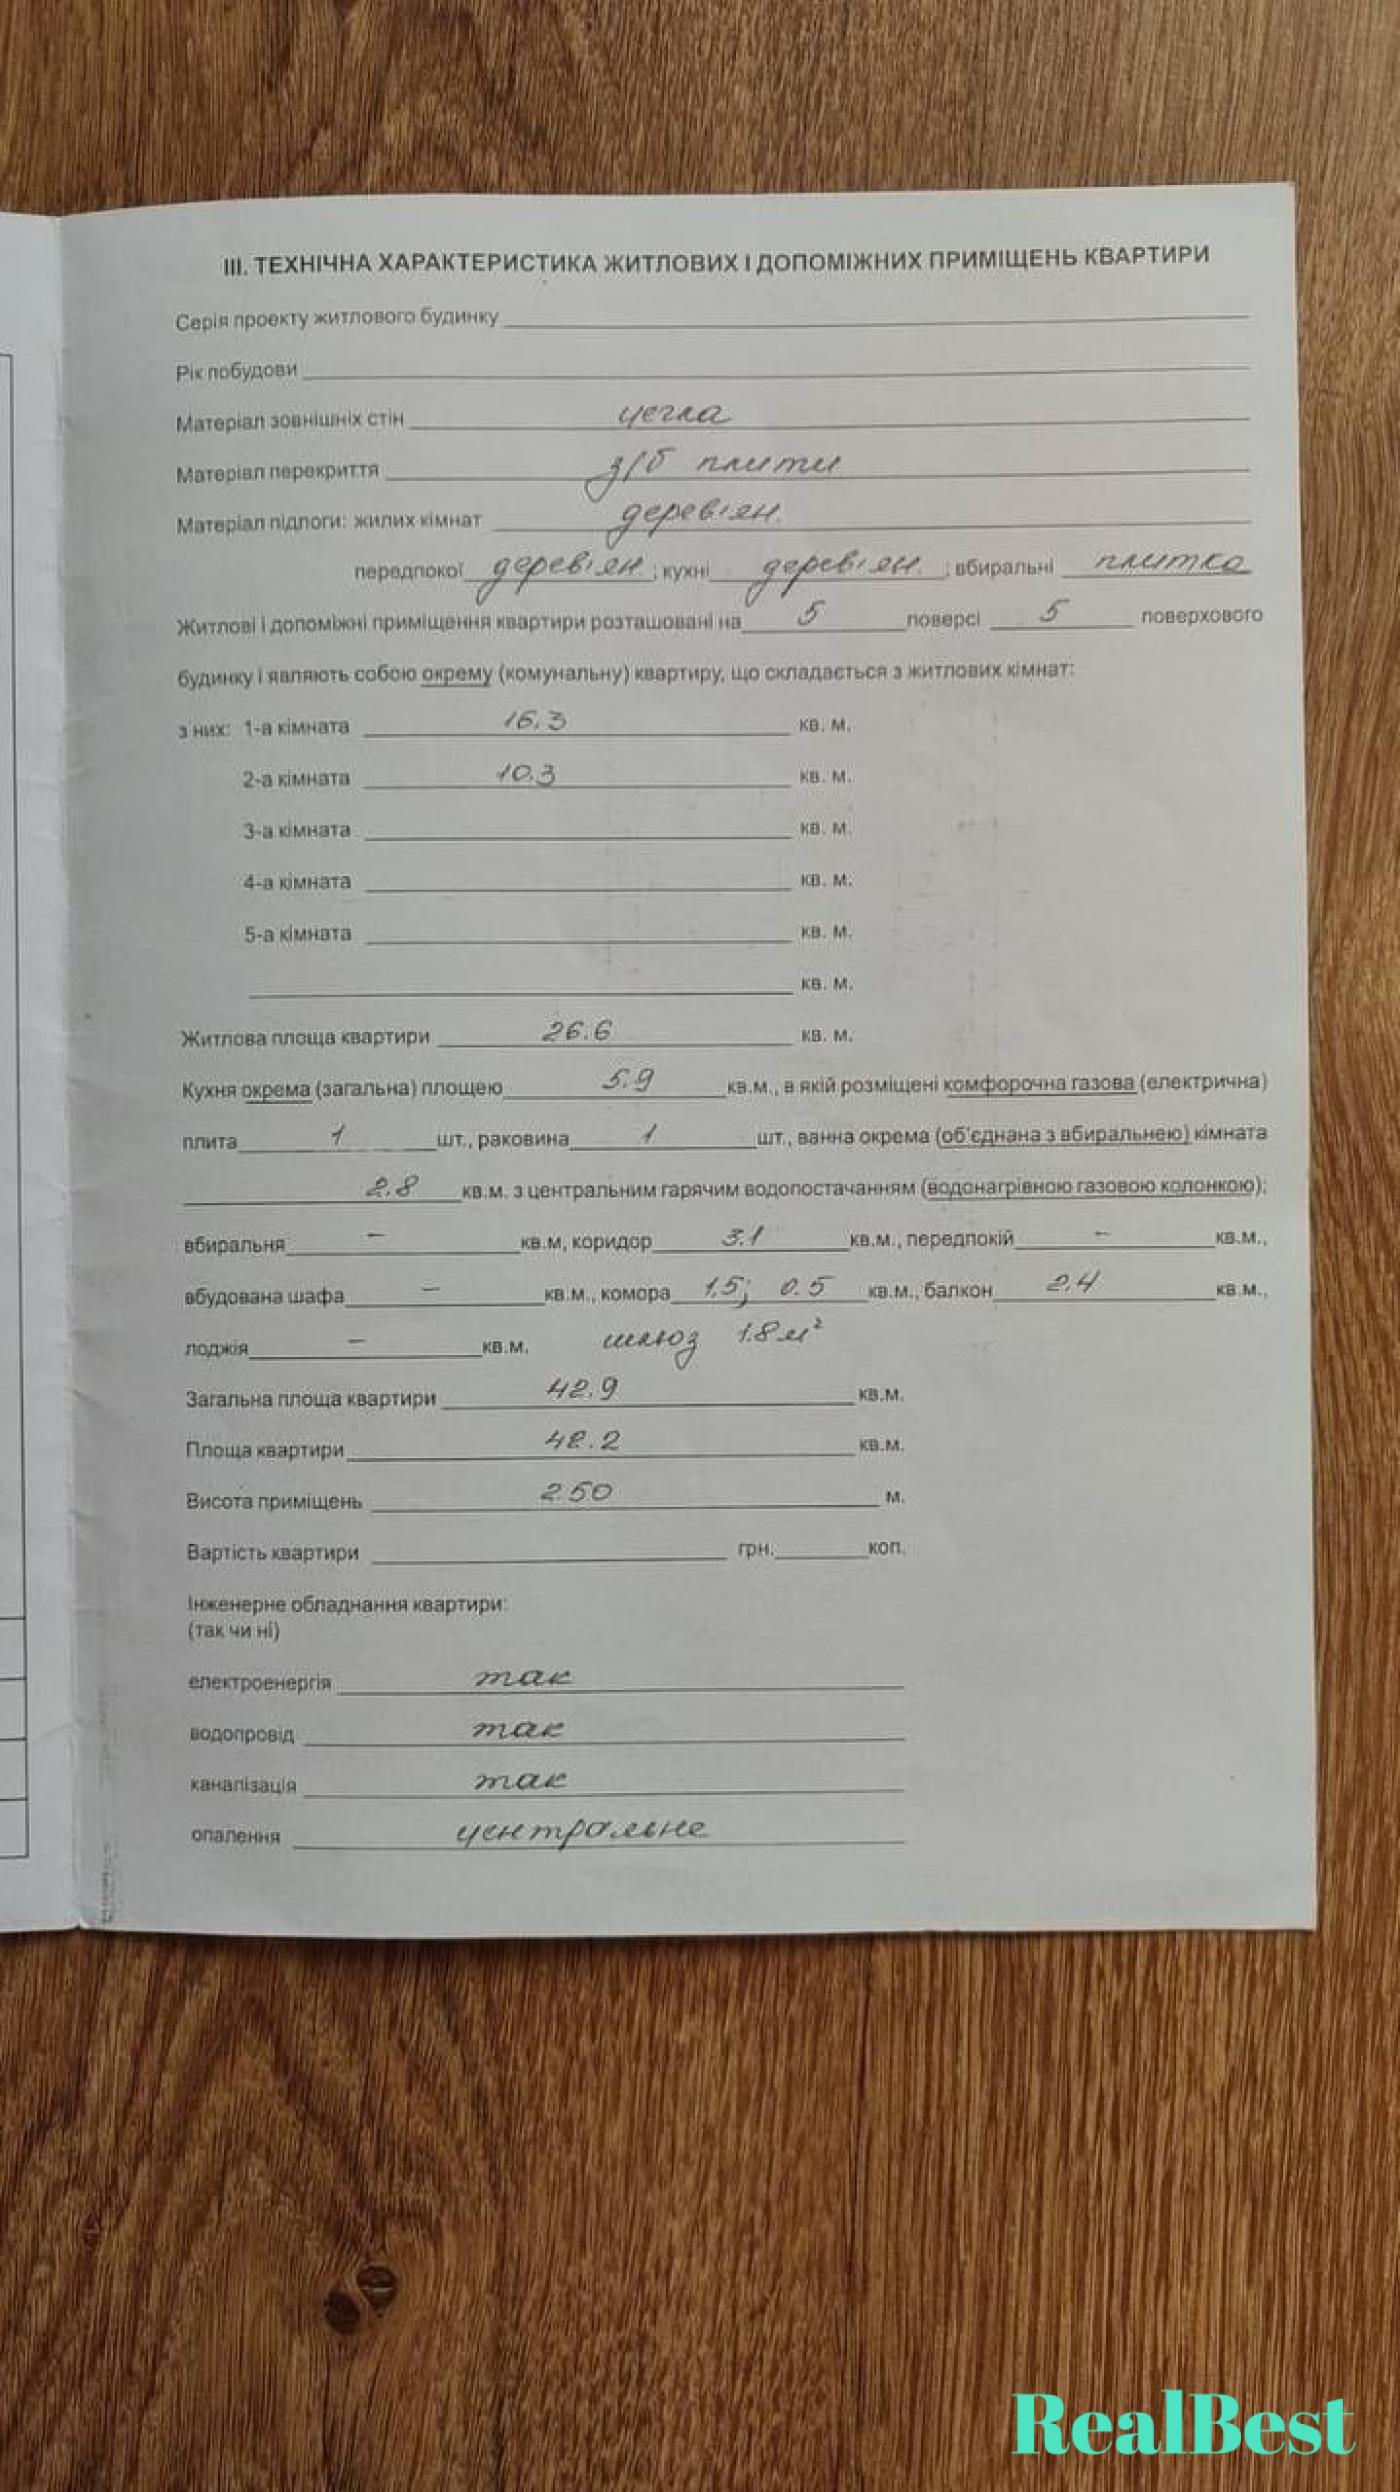 III. ТЕХНІЧНА ХАРАКТЕРИСТИКА ЖИТЛОВИХ І ДОПОМІЖНИХ ПРИМІЩЕНЬ КВАРТИРИ
Серія проекту житлового будинку
Рік побудови
Матеріал зовнішніх стін цегла
Матеріал перекриття з/б плити
Матеріал підлоги: жилих кімнат дерев'ян.
передпокої дерев'ян.; кухні дерев'ян.; вбиральні плитка
Житлові і допоміжні приміщення квартири розташовані на 5 поверсі 5 поверхового
будинку і являють собою окрему (комунальну) квартиру, що складається з житлових кімнат:
з них: 1-а кімната 16.3 кв. м.
2-а кімната 10.3 кв. м.
3-а кімната кв. м.
4-а кімната кв. м.
5-а кімната кв. м.
кв. м.
Житлова площа квартири 26.6 кв. м.
Кухня окрема (загальна) площею 5.9 кв.м., в якій розміщені комфорочна газова (електрична)
плита 1 шт., раковина 1 шт., ванна окрема (об'єднана з вбиральнею) кімната
2.8 кв.м. з центральним гарячим водопостачанням (водонагрівною газовою колонкою);
вбиральня – кв.м, коридор 3.1 кв.м., передпокій – кв.м.,
вбудована шафа – кв.м., комора 1.5; 0.5 кв.м., балкон 2.4 кв.м.,
лоджія – кв.м. шлюз 1.8 м²
Загальна площа квартири 42.9 кв.м.
Площа квартири 42.2 кв.м.
Висота приміщень 2.50 м.
Вартість квартири грн. коп.
Інженерне обладнання квартири:
(так чи ні)
електроенергія так
водопровід так
каналізація так
опалення центральне
RealBest